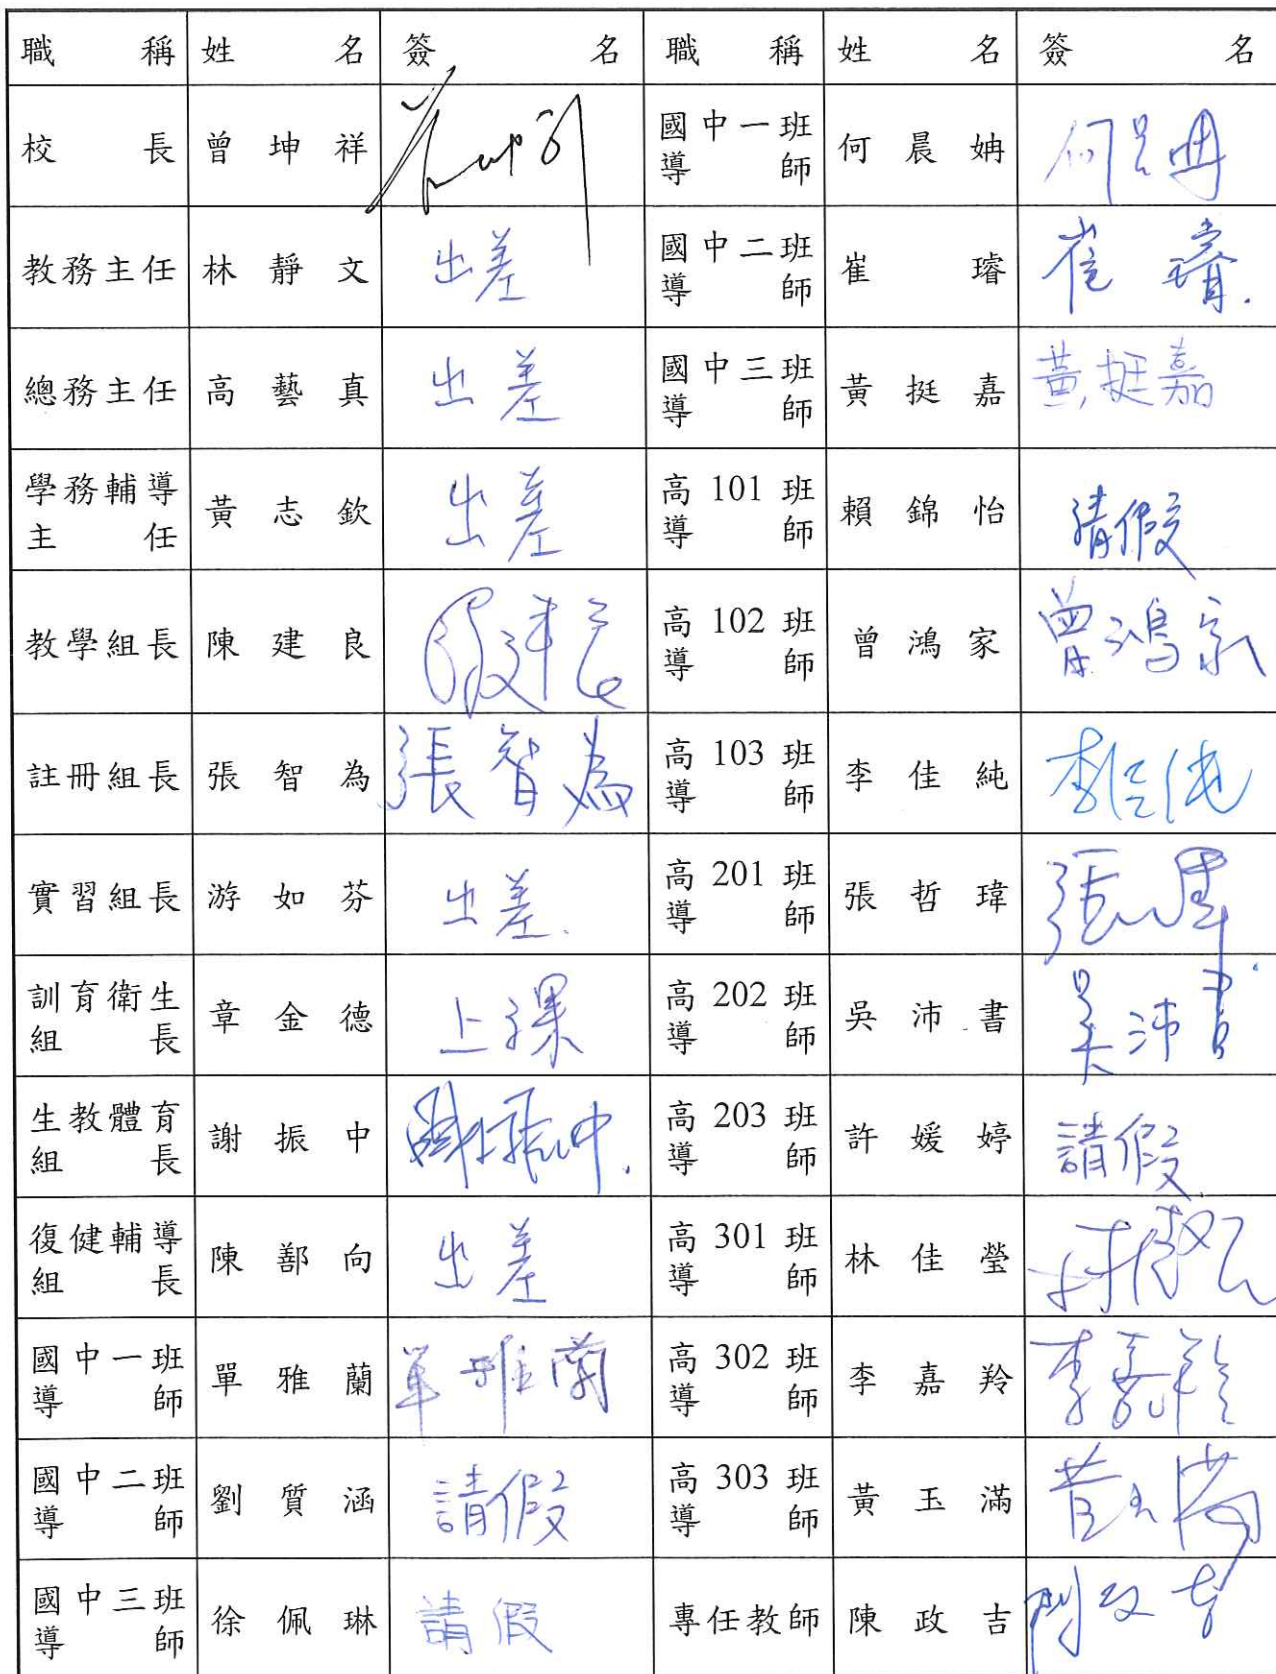 職稱 姓名 簽名 職稱 姓名 簽名
校長 曾坤祥 國中一班導師 何晨姌
教務主任 林靜文 出差 國中二班導師 崔璿 崔璿.
總務主任 高藝真 出差 國中三班導師 黃挺嘉 黃挺嘉
學務輔導主任 黃志欽 出差 高101班導師 賴錦怡 請假
教學組長 陳建良 陳建良 高102班導師 曾鴻家 曾鴻家
註冊組長 張智為 張智為 高103班導師 李佳純 李佳純
實習組長 游如芬 出差. 高201班導師 張哲瑋
訓育衛生組長 章金德 上課 高202班導師 吳沛書 吳沛書
生教體育組長 謝振中 謝振中. 高203班導師 許媛婷 請假
復健輔導組長 陳鄯向 出差 高301班導師 林佳瑩
國中一班導師 單雅蘭 單雅蘭 高302班導師 李嘉羚 李嘉羚
國中二班導師 劉質涵 請假 高303班導師 黃玉滿 黃玉滿
國中三班導師 徐佩琳 請假 專任教師 陳政吉 陳政吉